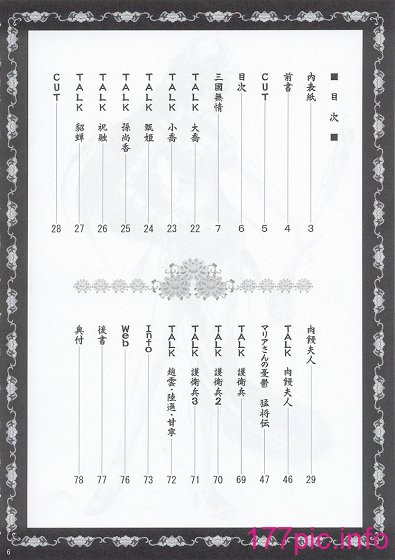 ■ 目 次 ■
内表紙 3
前書 4
CUT 5
目次 6
三國無情 7
TALK 大喬 22
TALK 小喬 23
TALK 甄姫 24
TALK 孫尚香 25
TALK 祝融 26
TALK 貂蝉 27
CUT 28
肉饅夫人 29
TALK 肉饅夫人 46
マリアさんの憂鬱 猛将伝 47
TALK 護衛兵 69
TALK 護衛兵2 70
TALK 護衛兵3 71
TALK 趙雲・陸遜・甘寧 72
Info 73
Web 76
後書 77
奥付 78
6
177pic.info